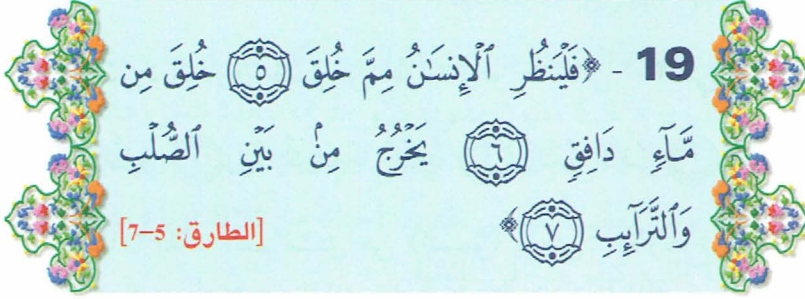 19 - ﴿فَلْيَنظُرِ ٱلْإِنسَـٰنُ مِمَّ خُلِقَ ٥ خُلِقَ مِن
مَّآءٍ دَافِقٍ ٦ يَخْرُجُ مِنۢ بَيْنِ ٱلصُّلْبِ
وَٱلتَّرَآئِبِ ٧﴾ [الطارق: 5–7]